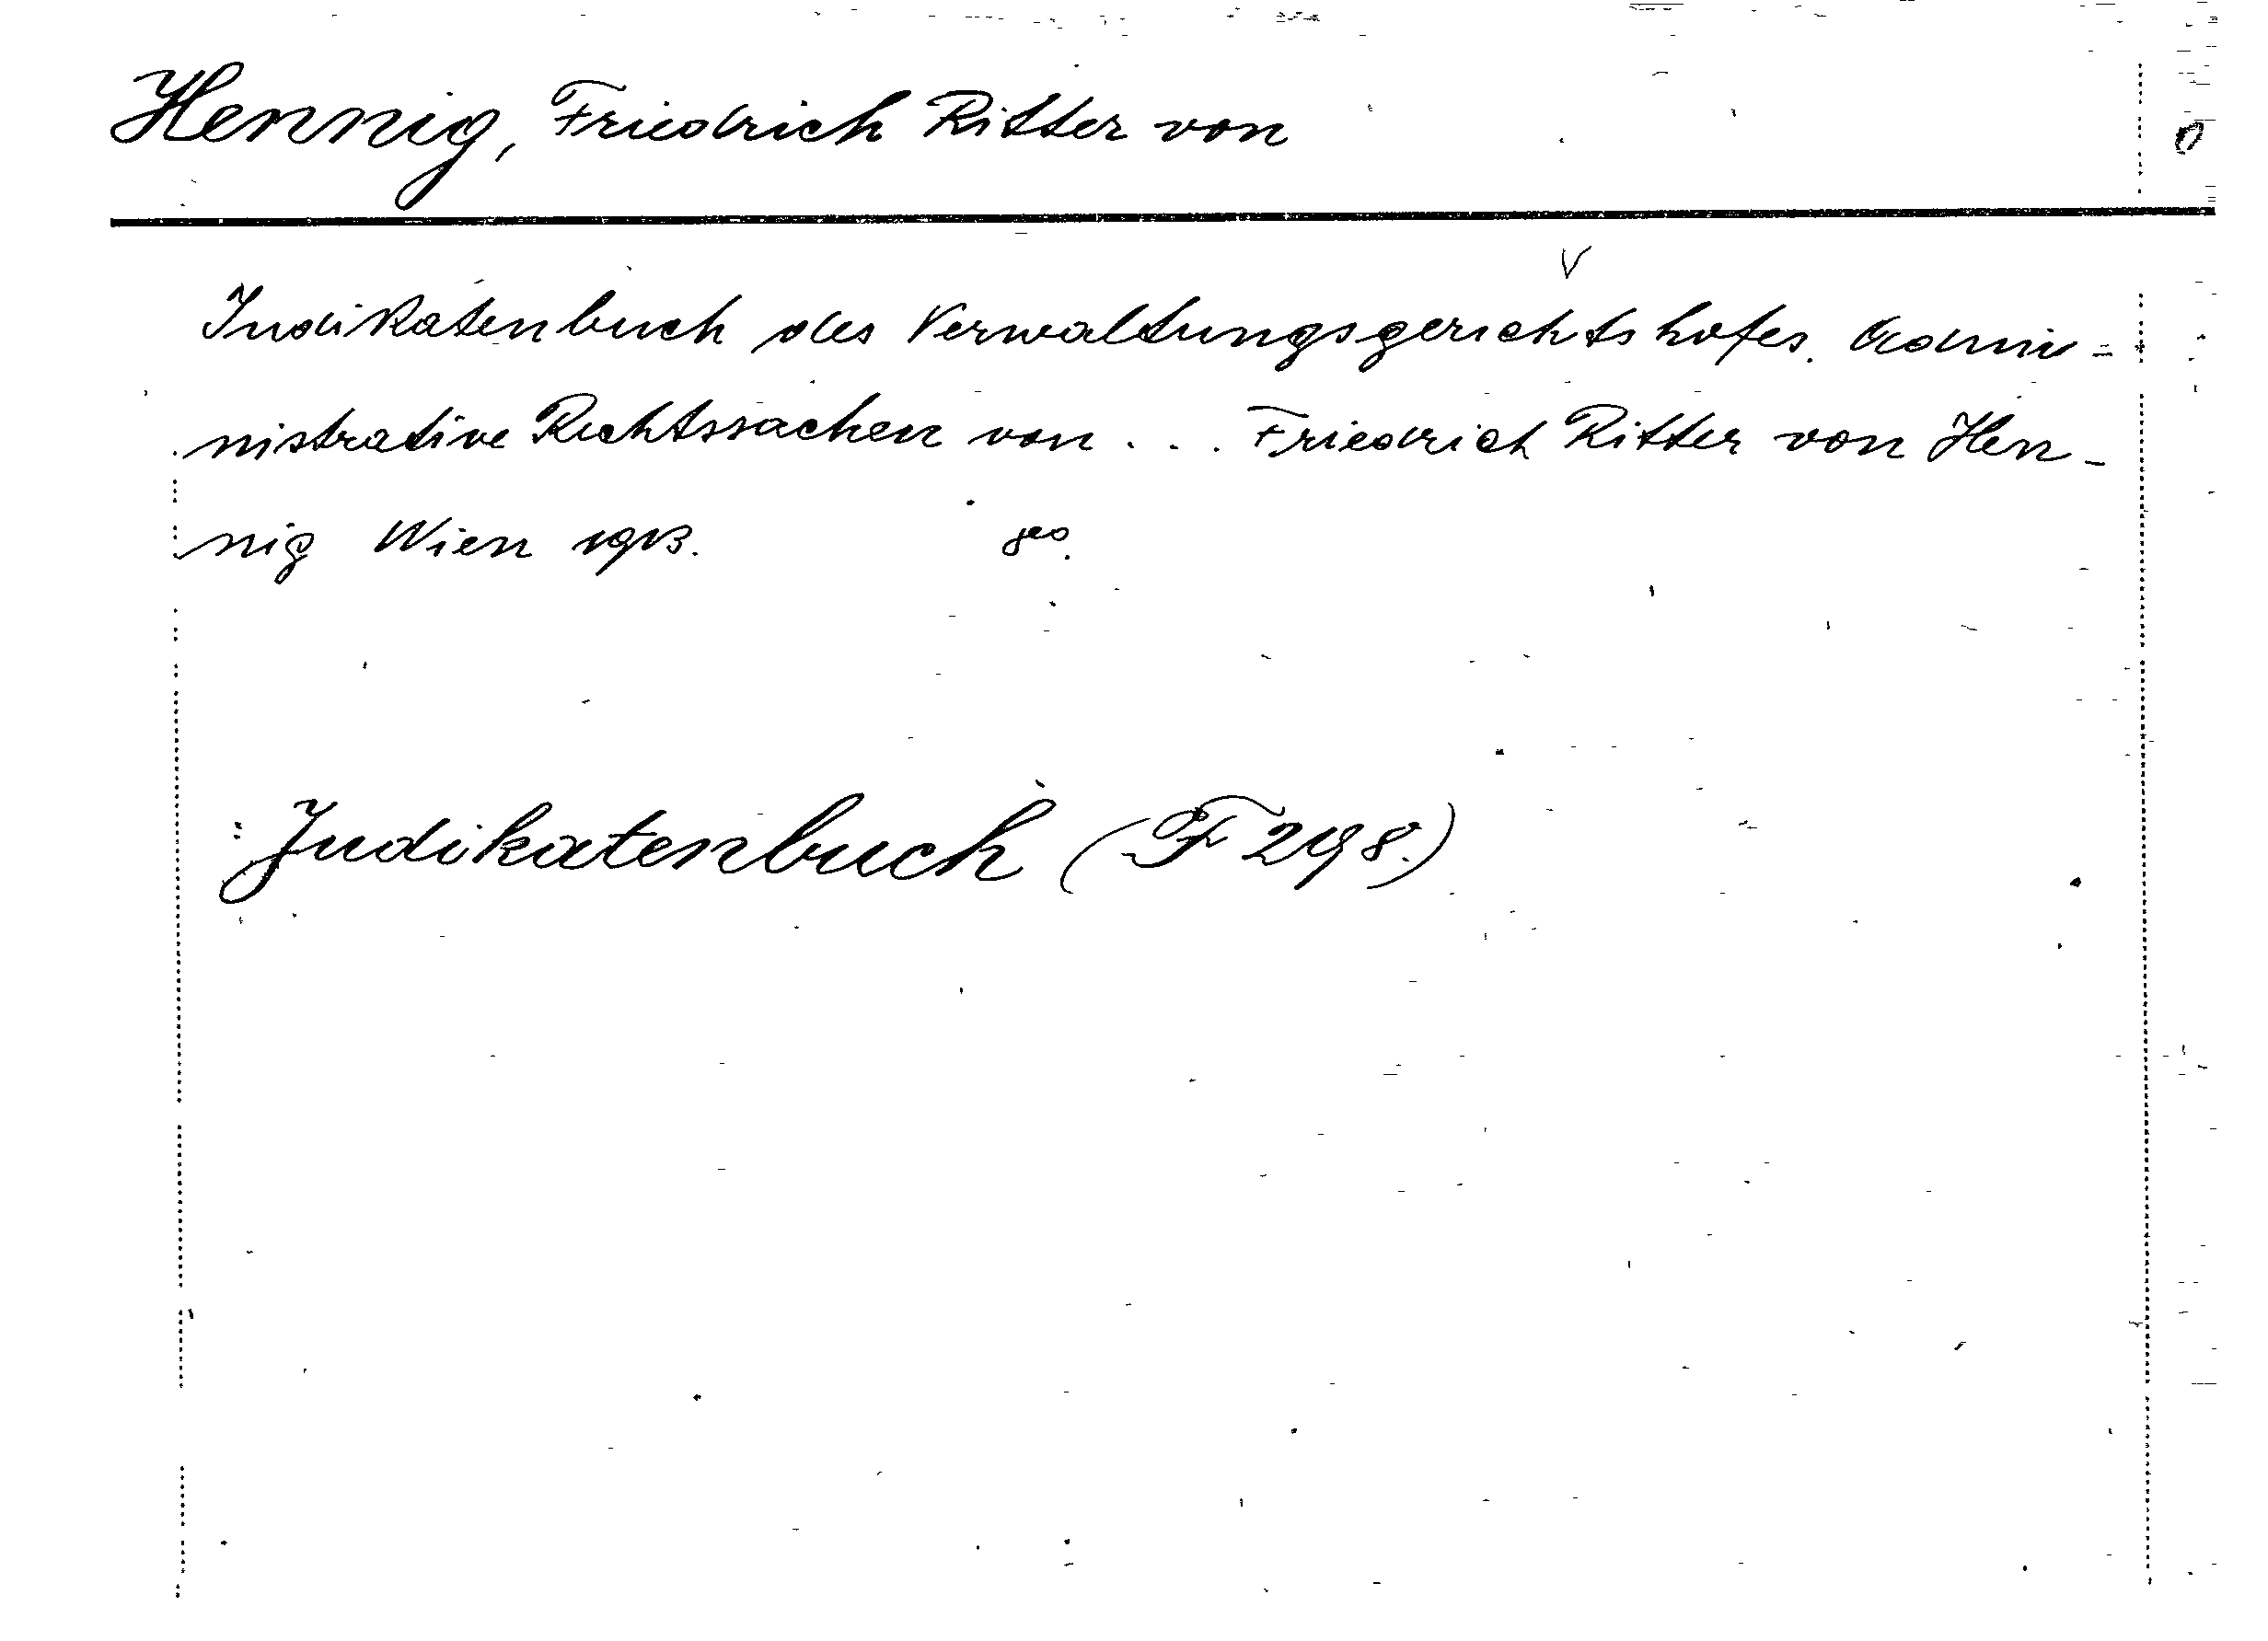 Hennig, Friedrich Ritter von
Judikatenbuch des Verwaltungsgerichtshofes. Admi-
nistrative Rechtssachen von . . . Friedrich Ritter von Hen-
nig Wien 1913. 8°.
Judikatenbuch (F 298.)